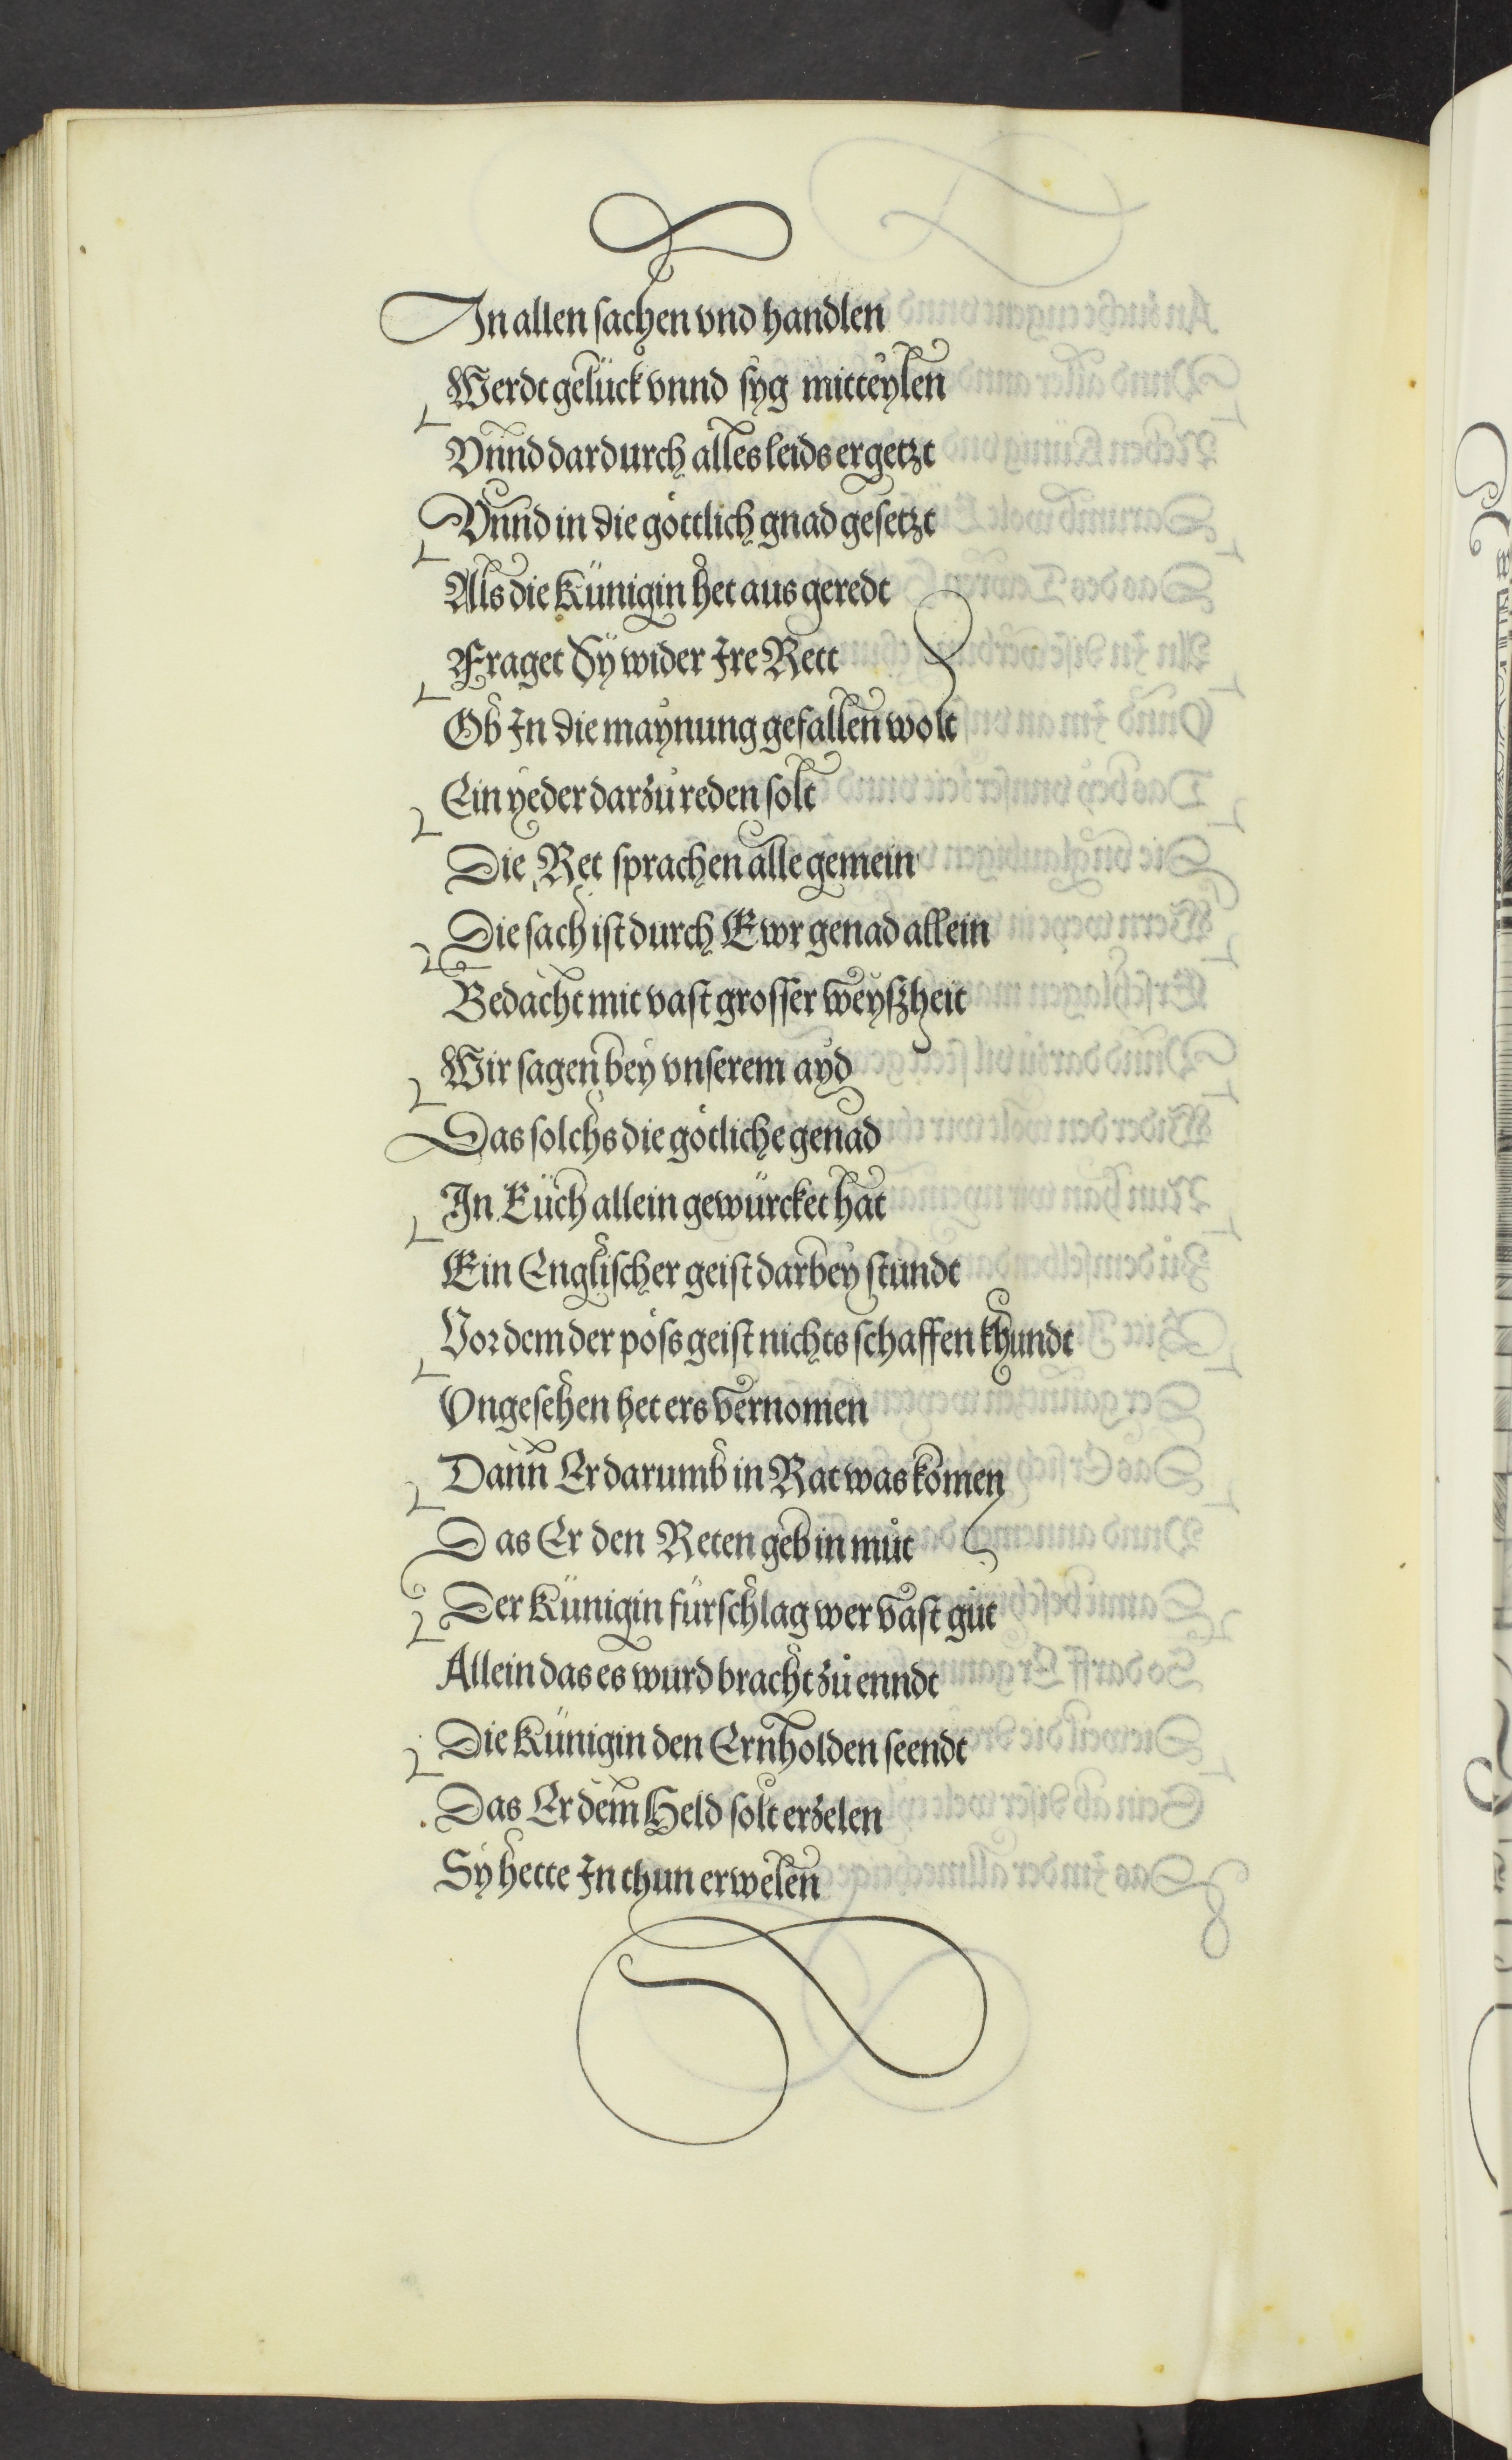 In allen sachen vnd handlen
Werdt gelück vnnd syg mitteylen
Vnnd dardurch alles leids ergetzt
Vnnd in die göttlich gnad gesetzt
Als die Künigin het aus geredt
Fraget Sy wider Ire Rett
Ob In die maynung gefallen wolt
Ein yeder darzů reden solt
Die Ret sprachen alle gemein
Die sach ist durch Ewr genad allein
Bedacht mit vast grosser weyßheit
Wir sagen bey vnserem ayd
Das solchs die götliche genad
In Euch allein gewürcket hat
Ein Englischer geist darbey stundt
Vor dem der pöss geist nichts schaffen khundt
Ongesehen het ers vernomen
Dann Er darumb in Rat was komen
Das Er den Reten geb in můt
Der Künigin fürschlag wer vast gůt
Allein das es wurd bracht zů enndt
Die Künigin den Ernholden seendt
Das Er dem Held solt erzelen
Sy hette In thun erwelen